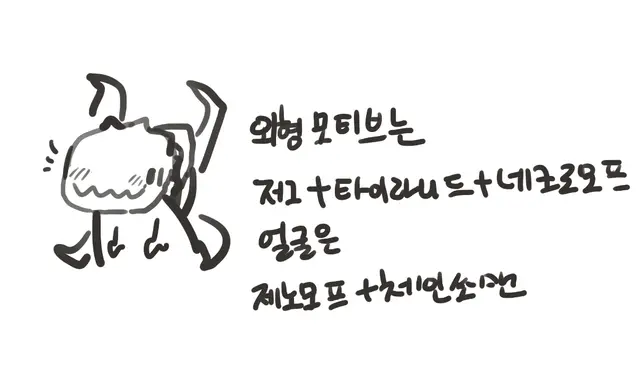 외형 모티브는
저그+타이라니드+네크로모프
얼굴은
제노모프+체인쏘맨